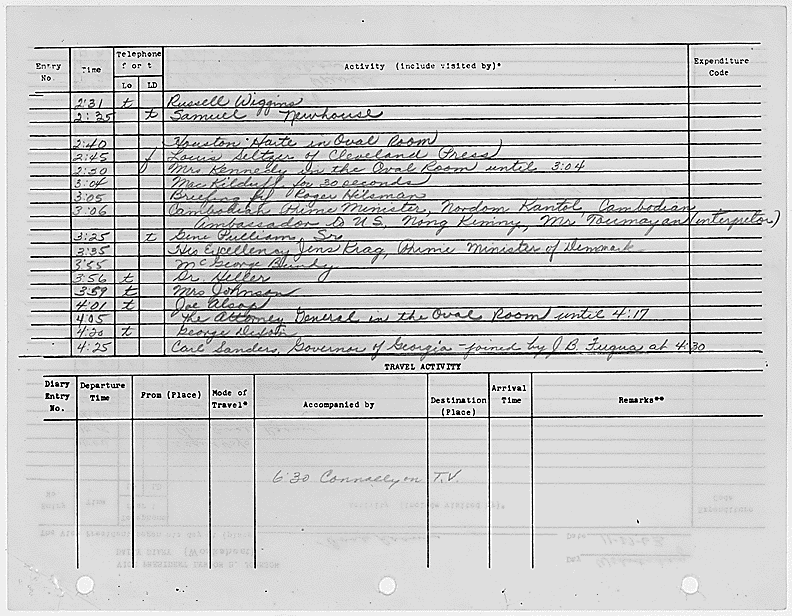 Entry No. Time Telephone f or t Lo LD Activity (include visited by)* Expenditure Code
2:31 t Russell Wiggins
2:35 t Samuel Newhouse
2:40 Houston Harte in Oval Room
2:45 f Louis Seltzer of Cleveland Press
2:50 Mrs Kennedy in the Oval Room until 3:04
3:04 Mac Kilduff for 30 seconds
3:05 Briefing by Roger Hilsman
3:06 Cambodian Prime Minister, Nordom Kantol, Cambodian
Ambassador to U.S, Nong Kimny, Mr Toumayan (interpretor)
3:25 t Gene Pulliam, Sr
3:35 His Excellency Jens Krag, Prime Minister of Denmark
3:55 McGeorge Bundy
3:56 t Dr. Heller
3:59 t Mrs Johnson
4:01 t Joe Alsop
4:05 The Attorney General in the Oval Room until 4:17
4:20 t George Dixon
4:25 Carl Sanders, Governor of Georgia - joined by J.B. Fuqua at 4:30
TRAVEL ACTIVITY
Diary Entry No. Departure Time From (Place) Mode of Travel* Accompanied by Destination (Place) Arrival Time Remarks**
6:30 Connally on T.V.